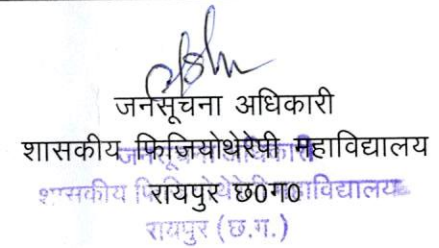 जनसूचना अधिकारी
शासकीय फिजियोथेरेपी महाविद्यालय
रायपुर छ0ग0
जनसूचना अधिकारी
शासकीय फिजियोथेरेपी महाविद्यालय
रायपुर (छ.ग.)